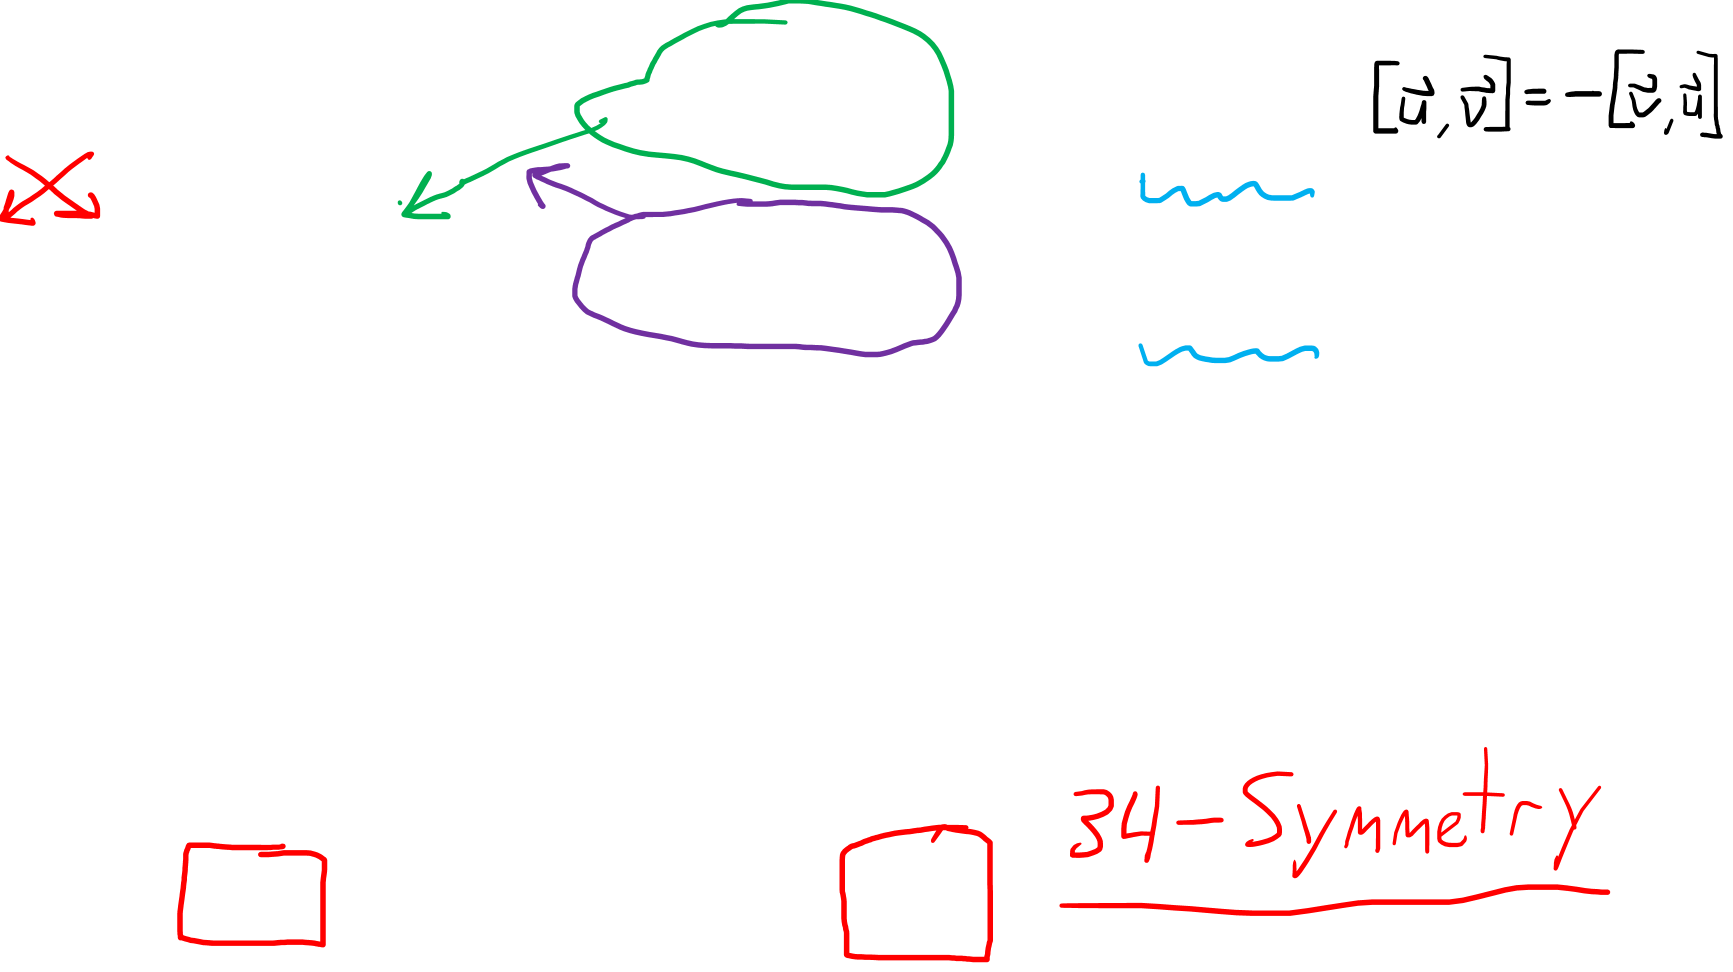 [u⃗, v⃗] = -[v⃗, u⃗]
34-Symmetry